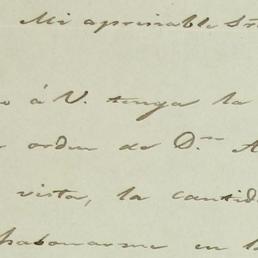 Mi apreciable Sr
o á V. tenga la
orden de D.n A
vista, la cantid
abonarme en l